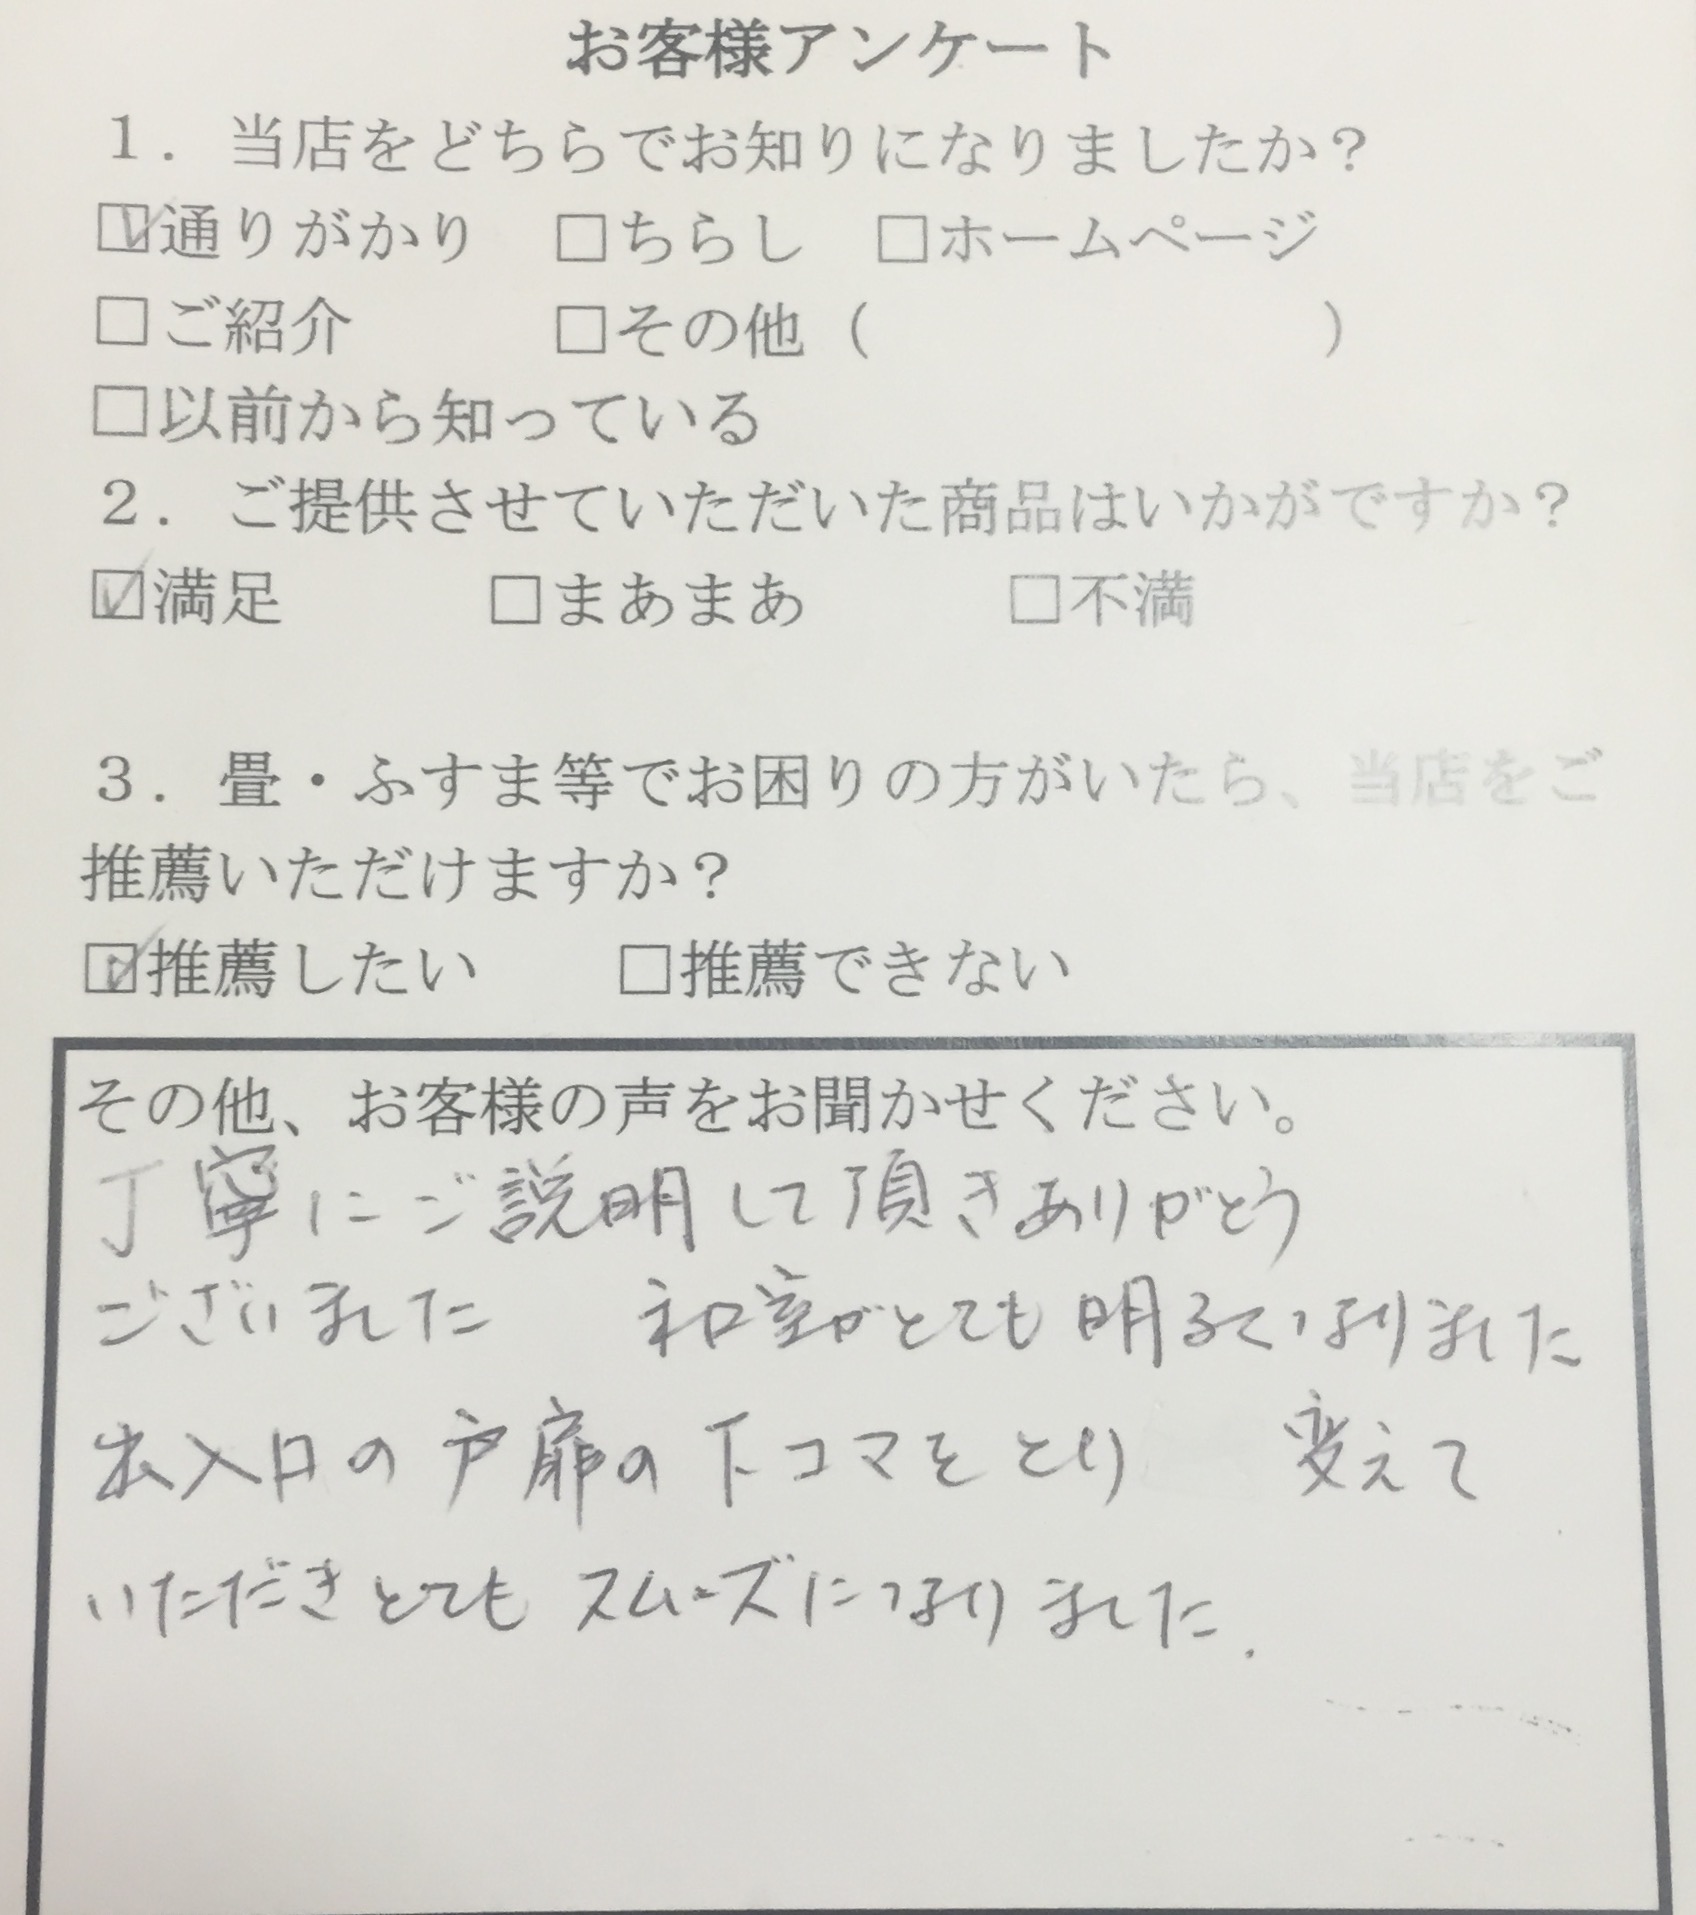 お客様アンケート
１．当店をどちらでお知りになりましたか？
☑通りがかり　□ちらし　□ホームページ
□ご紹介　　　□その他（　　　　　　　）
□以前から知っている
２．ご提供させていただいた商品はいかがですか？
☑満足　　　□まあまあ　　　□不満
３．畳・ふすま等でお困りの方がいたら、当店をご
推薦いただけますか？
☑推薦したい　　□推薦できない
その他、お客様の声をお聞かせください。
丁寧にご説明して頂きありがとう
ございました　和室がとても明るくなりました
出入口の戸扉の下コマをとり　変えて
いただきとてもスムーズになりました.